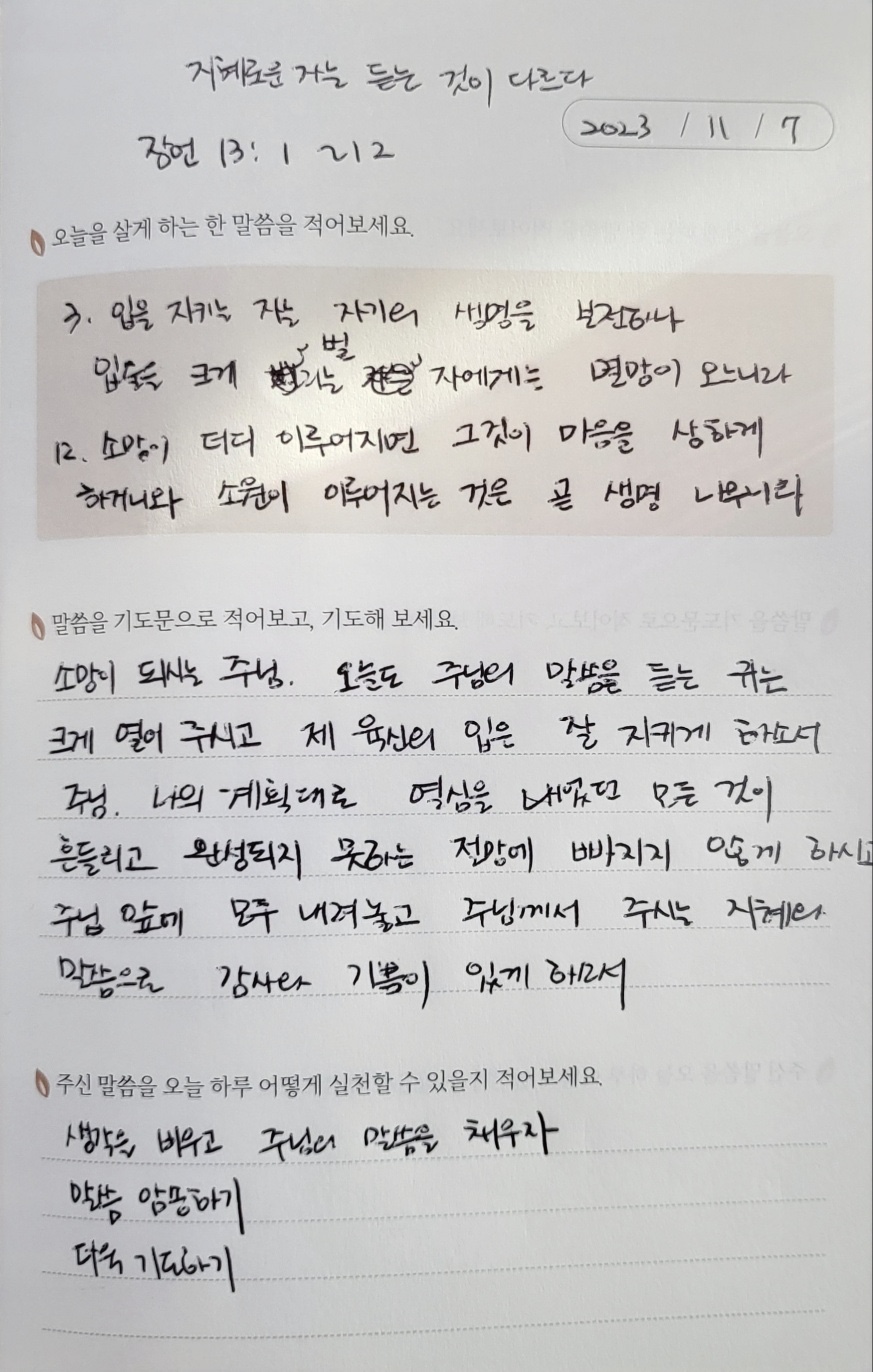 지혜로운 자는 듣는 것이 다르다
2023 / 11 / 7
잠언 13: 1 ~12
오늘을 살게 하는 한 말씀을 적어보세요.
3. 입을 지키는 자는 자기의 생명을 보전하나
벌
입술을 크게 리는 자에게는 멸망이 오느니라
12. 소망이 더디 이루어지면 그것이 마음을 상하게
하거니와 소원이 이루어지는 것은 곧 생명 나무니라
말씀을 기도문으로 적어보고, 기도해 보세요.
소망이 되시는 주님. 오늘도 주님의 말씀을 듣는 귀는
크게 열어 주시고 제 육신의 입은 잘 지키게 하소서
주님. 나의 계획대로 열심을 내었던 모든 것이
흔들리고 완성되지 못하는 절망에 빠지지 않게 하시고
주님 앞에 모두 내려놓고 주님께서 주시는 지혜와
말씀으로 감사와 기쁨이 있게 하소서
주신 말씀을 오늘 하루 어떻게 실천할 수 있을지 적어보세요.
생각을 비우고 주님의 말씀을 채우자
말씀 암송하기
더욱 기도하기